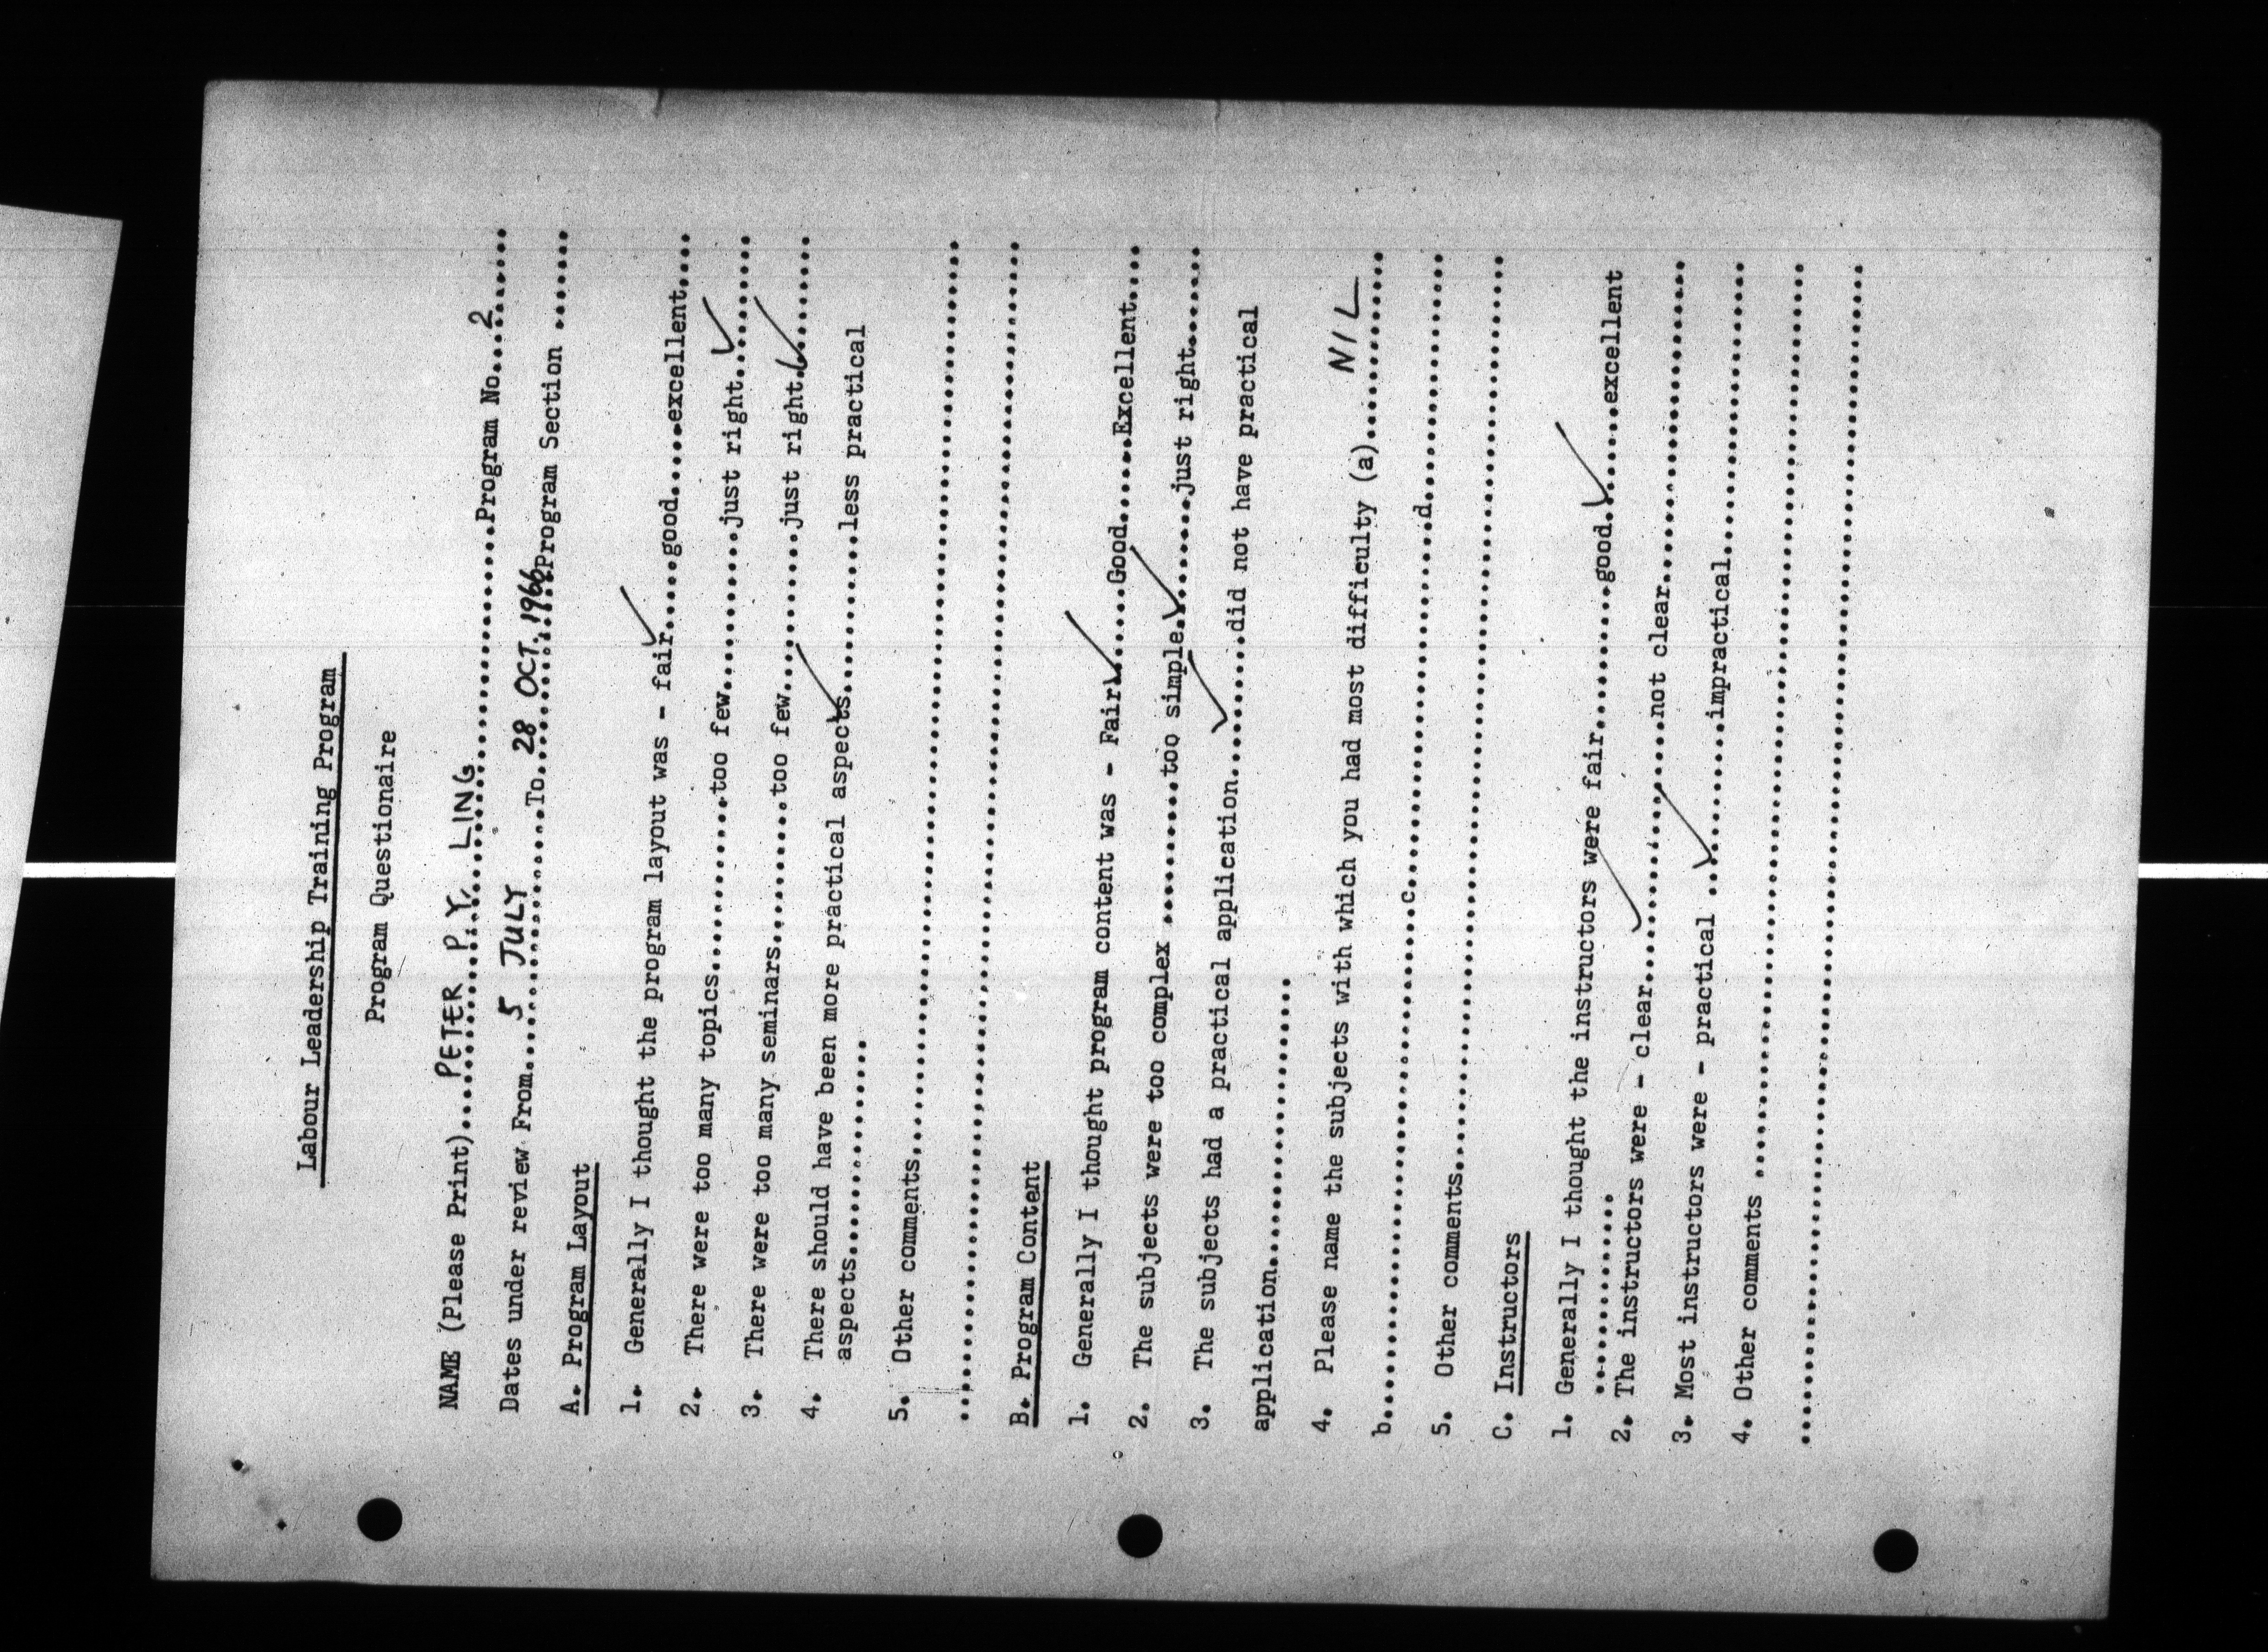 Labour Leadership Training Program
Program Questionaire
NAME (Please Print)....PETER P.Y. LING....................Program No....2......
Dates under review From......5 JULY..........To....28 OCT. 1966....Program Section .......
A. Program Layout
1. Generally I thought the program layout was - fair✓.....good.....excellent....
2. There were too many topics..............too few............just right..✓.......
3. There were too many seminars............too few............just right.✓........
4. There should have been more practical aspects✓............less practical
aspects....................
5. Other comments..........................................................
...........................................................................
B. Program Content
1. Generally I thought program content was - Fair✓......Good......Excellent....
2. The subjects were too complex ..........too simple.✓........just right.......
3. The subjects had a practical application....✓......did not have practical
application....................
4. Please name the subjects with which you had most difficulty (a).....NIL.......
b..................................c........................d.................
5. Other comments..........................................................
C. Instructors
1. Generally I thought the instructors were fair..........good.✓......excellent
..............
2. The instructors were - clear....✓..........not clear......................
3. Most instructors were - practical ..✓.........impractical..................
4. Other comments .........................................................
...........................................................................